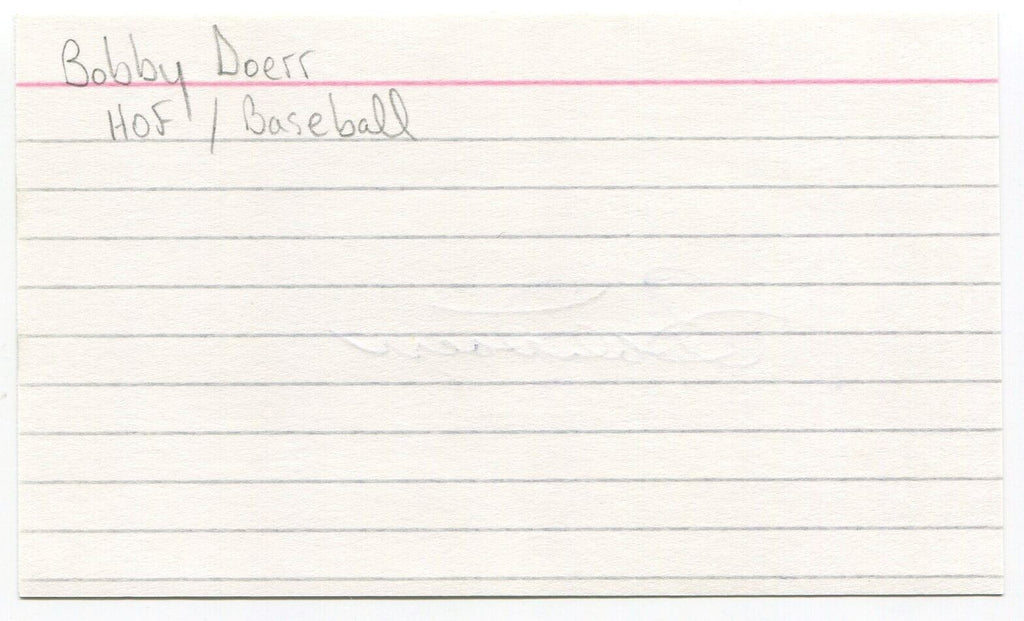 Bobby Doerr
HOF / Baseball